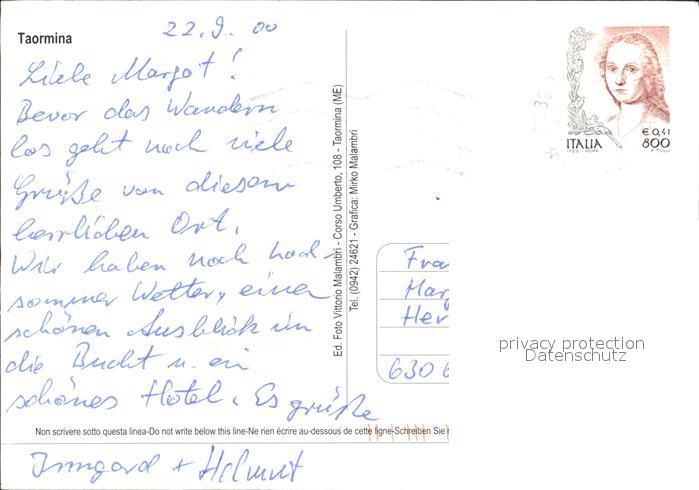 Taormina
22.9.00
Liebe Margot!
Bevor das Wandern
los geht noch viele
Grüße von diesem
herrlichen Ort.
Wir haben noch hoch-
sommer Wetter, einen
schönen Ausblick in
die Bucht u. ein
schönes Hotel. Es grüße
Non scrivere sotto questa linea-Do not write below this line-Ne rien écrire au-dessous de cette ligne-Schreiben Sie
Irmgard + Helmut
Ed. Foto Vittorio Malambri - Corso Umberto, 108 - Taormina (ME)
Tel. (0942) 24621 - Grafica: Mirko Malambri
€ 0,41
ITALIA 800
I.P.Z.S. - ROMA
Fra
Mar
Her
6306
privacy protection
Datenschutz